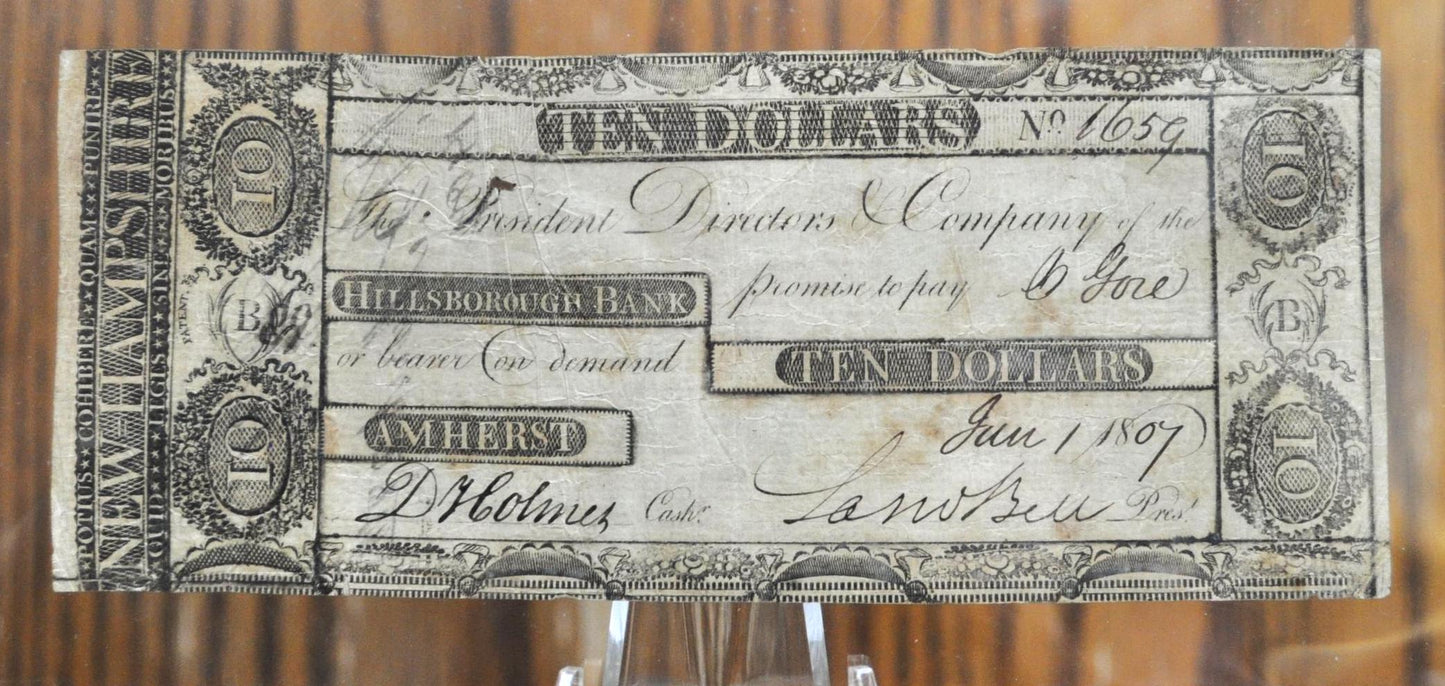 POTIUS COHIBERE QUAM PUNIRE
NEW=HAMPSHIRE
QUID LEGES SINE MORIBUS
PATENT.
10
B
10
TEN DOLLARS Nº 1659
The President Directors & Company of the
HILLSBOROUGH BANK promise to pay C Gore
or bearer on demand TEN DOLLARS
AMHERST Jan 1 1807
D Holmes Cashr. Saml Bell Prest.
10
B
10